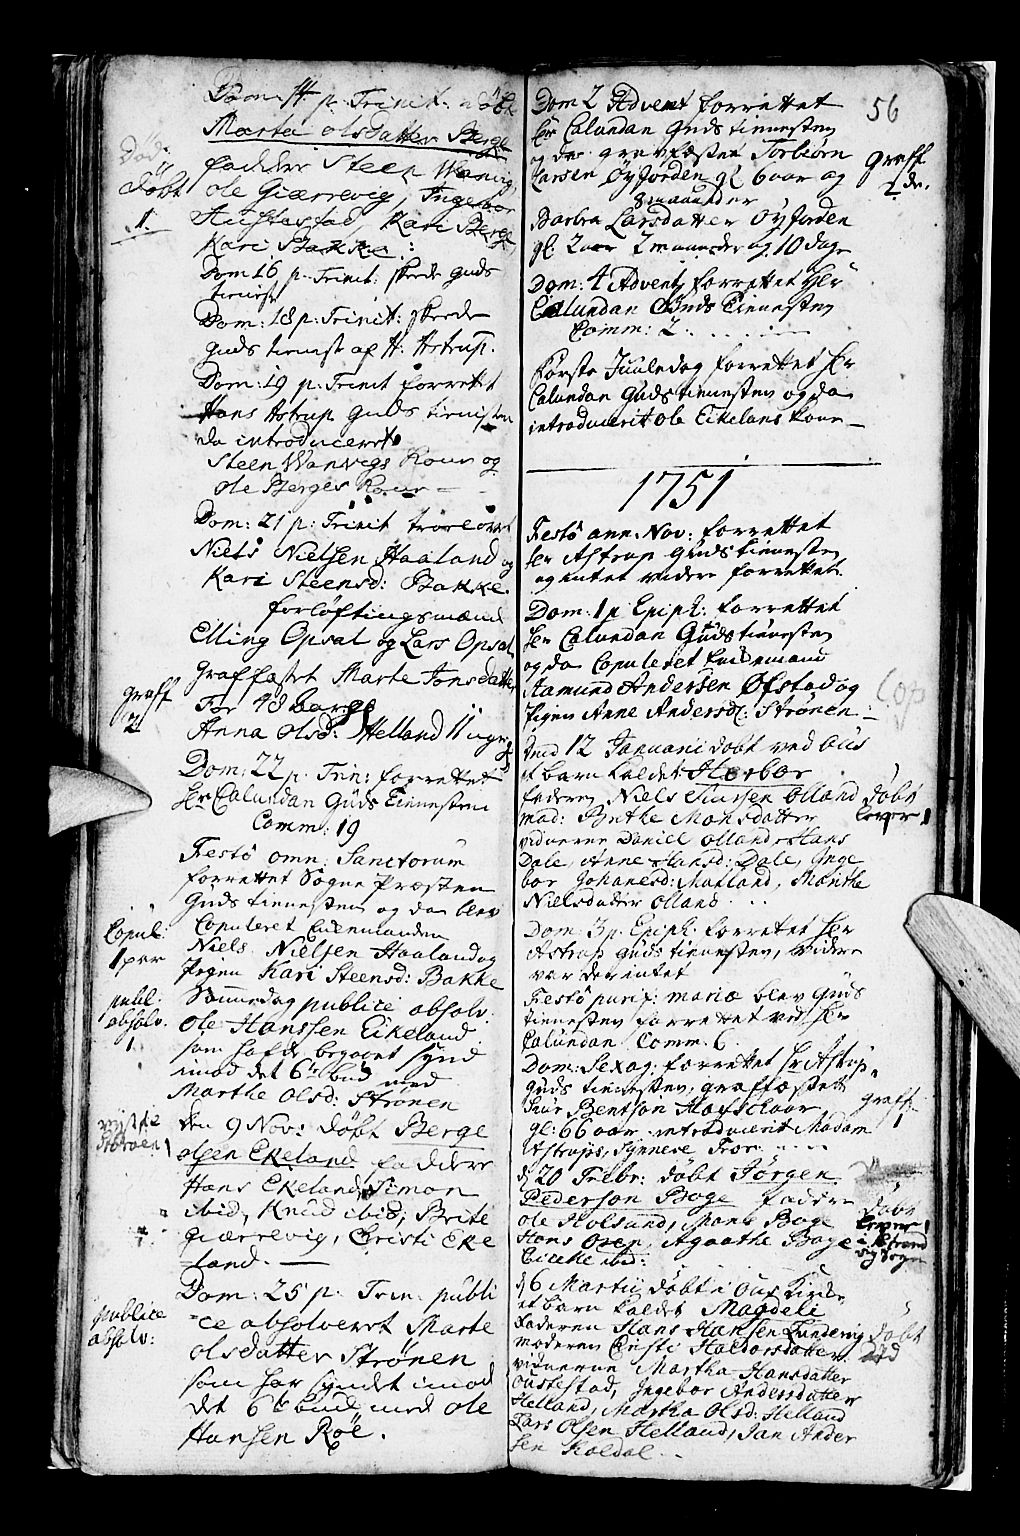 Dom: 14 p. Trinit. döbt
Marta olsdatter Berge
faddere Steen Wanvig,
ole Giærrevig, Ingebor
Austestad, Kari Berge,
Kari Bakke:
döbt
1.
Dom 16 p. Trinit: skede guds
tienist
Dom: 18 p: Trinit: skede
guds tienist af H: Astrup.
Dom: 19 p. Trinit forrettet
Hans Astrup guds tienisten
da introduceret
Steen Wanvigs kone og
ole Berges kone
Dom: 21 p: Trinit trolovet
Niels Nielsen Haaland og
Kari Steensd: Bakke
forløftingsmænd
Elling Opsal og Lars Opsal
graffæstet Marte Jonsdatter
graff
2
Anna olsd: Helland 11 uger
Dom: 22 p. Trin: forrettet
Hr Calundan Guds Tienesten
Comm: 19
Festo omn: Sanctorum
forrettet Sogne Præsten
Guds tienesten og da blev
Copuleret Enkemanden
Niels Nielsen Haaland og
Pigen Kari Steensd: Bakke
Copul:
1 par
Samedag publice absolv:
Ole Hanssen Eikeland
som hafde begaaet synd
imod det 6te bud med
Marthe Olsd: Strönen
publ:
absolv.
1.
den 9 Nov: döbt Berge
olsen Ekeland faddere
Hans Ekeland, Simon
ibid, Knud ibid; Brite
Giærrevig, Christi Eke
land.
Dom: 25 p. Trin: publi
ce absolveret Marte
olsdatter Strönen
som har syndet imod
det 6te bud med ole
Hansen Röe.
publice
absolv:
56
Dom 2 Advent forrettet
Hr Calundan Guds tienesten
og da gravfæstet Torbiørn
Larsen Øyjorden gl 6 aar og
8 maaneder
Barbra Larsdatter Øyjorden
gl. 2 aar 2 maaneder og 10 dage
graff
2 de.
Dom: 4 Advent forrettet Hr
Calundan Guds Tienesten
Comm: 2
Første Juuledag forrettet Hr
Calundan Guds tienesten og da
introducerit Ole Eikelans kone
1751
Festo ann. Nov: forrettet
Hr Astrup Guds tienesten
og intet videre forrettet.
Dom: 1 p Epiph: forrettet
Hr Calundan Guds tienesten
og da Copuleret Enkemand
Aamund Andersen Øfstad og
Pigen Anne Andersd: Strönen
Cop
12 Januarii döbt ved huus
et barn kaldet Herbor
faderen Niels Siursen Olland
mod: Brithe Monsdatter
vidnerne Daniel olland, Hans
Dale, Anne Hansd: Dale, Inge
bor Johanesd: Matland, Marithe
Nielsdatter Olland
döbt
lever 1
Dom: 3 p. Epiph. forrettet Hr
Astrup Guds tienesten, videre
var der intet
Festo purif: mariæ blev Guds
tienesten forrettet ved Hr
Calundan Comm. 6.
Dom: Sexag: forrettet Hr Astrup
Guds tienesten, graffæstet
Siur Bentson
gl: 66 aar introducerit Madam
Astrups,
graff
1
d 20 Febr: döbt Jörgen
Pederson Boge faddere
ole Holsand, Mons Boge
Hans Oren, Agaathe Boge
ibid:
döbt
lever 1
i Strand
vig Sogn
d 6 Martii döbt i Ous Kirke
et barn kaldet Magdeli
Faderen Hans Hansen
moderen Cristi Haldorsdatter
vidnerne Martha Hansdatter
Oustestad, Ingebor Andersdatter
Helland, Martha Olsd: Helland
Lars Olsen Helland, Jan Ander
sen Koldal
döbt
död